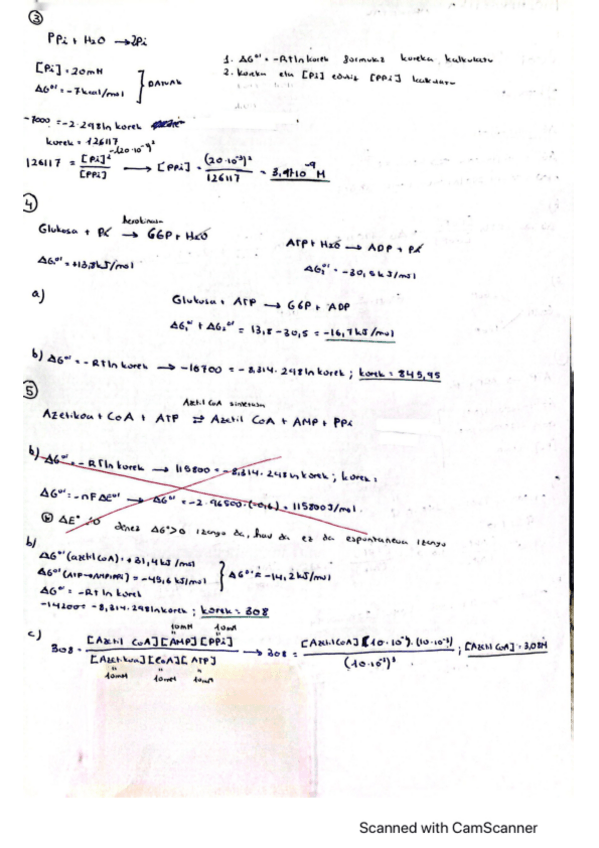 ③
PPi + H2O → 2Pi
[Pi] = 20mM
ΔG°' = -7kcal/mol
} DATUAK
1. ΔG°' = -RTln korek formulaz koreka kalkulatu
2. koreka eta [Pi] eduki [PPi] kalkulatu
-7000 = -2·298ln korek
korek = 126117
126117 = [Pi]² / [PPi] → [PPi] = (20·10⁻³)² / 126117 = 3,17·10⁻⁹ M
(20·10⁻³)²
④
Glukosa + Pi → G6P + H2O
hexokinasa
ATP + H2O → ADP + Pi
ΔG°' = +13,8kJ/mol
ΔG₂°' = -30,5kJ/mol
a)
Glukosa + ATP → G6P + ADP
ΔG₁°' + ΔG₂°' = 13,8-30,5 = -16,7kJ/mol
b) ΔG°' = -RTln korek → -16700 = -8,314·298ln korek ; korek = 845,95
⑤
Azetil CoA sintetasa
Azetikoa + CoA + ATP ⇌ Azetil CoA + AMP + PPi
b) ΔG°' = -RTln korek → 115800 = -8,314·298ln korek ; korek =
ΔG°' = -nFΔE°' → ΔG°' = -2·96500·(-0,6) = 115800J/mol
ΔE° denez ΔG°>0 izango da, hau da ez da espontaneoa izango
b)
ΔG°' (azetil CoA) = +31,4kJ/mol
ΔG°' (ATP→AMP+PPi) = -45,6kJ/mol
} ΔG°' = -14,2kJ/mol
ΔG°' = -RTln korek
-14200 = -8,314·298ln korek ; korek = 308
c)
10mM 10mM
308 = [Azetil CoA][AMP][PPi] / [Azetikoa][CoA][ATP] → 308 = [Azetil CoA](10·10⁻³)·(10·10⁻³) / (10·10⁻³)³ ; [Azetil CoA] = 3,08M
10mM 10mM 10mM
Scanned with CamScanner